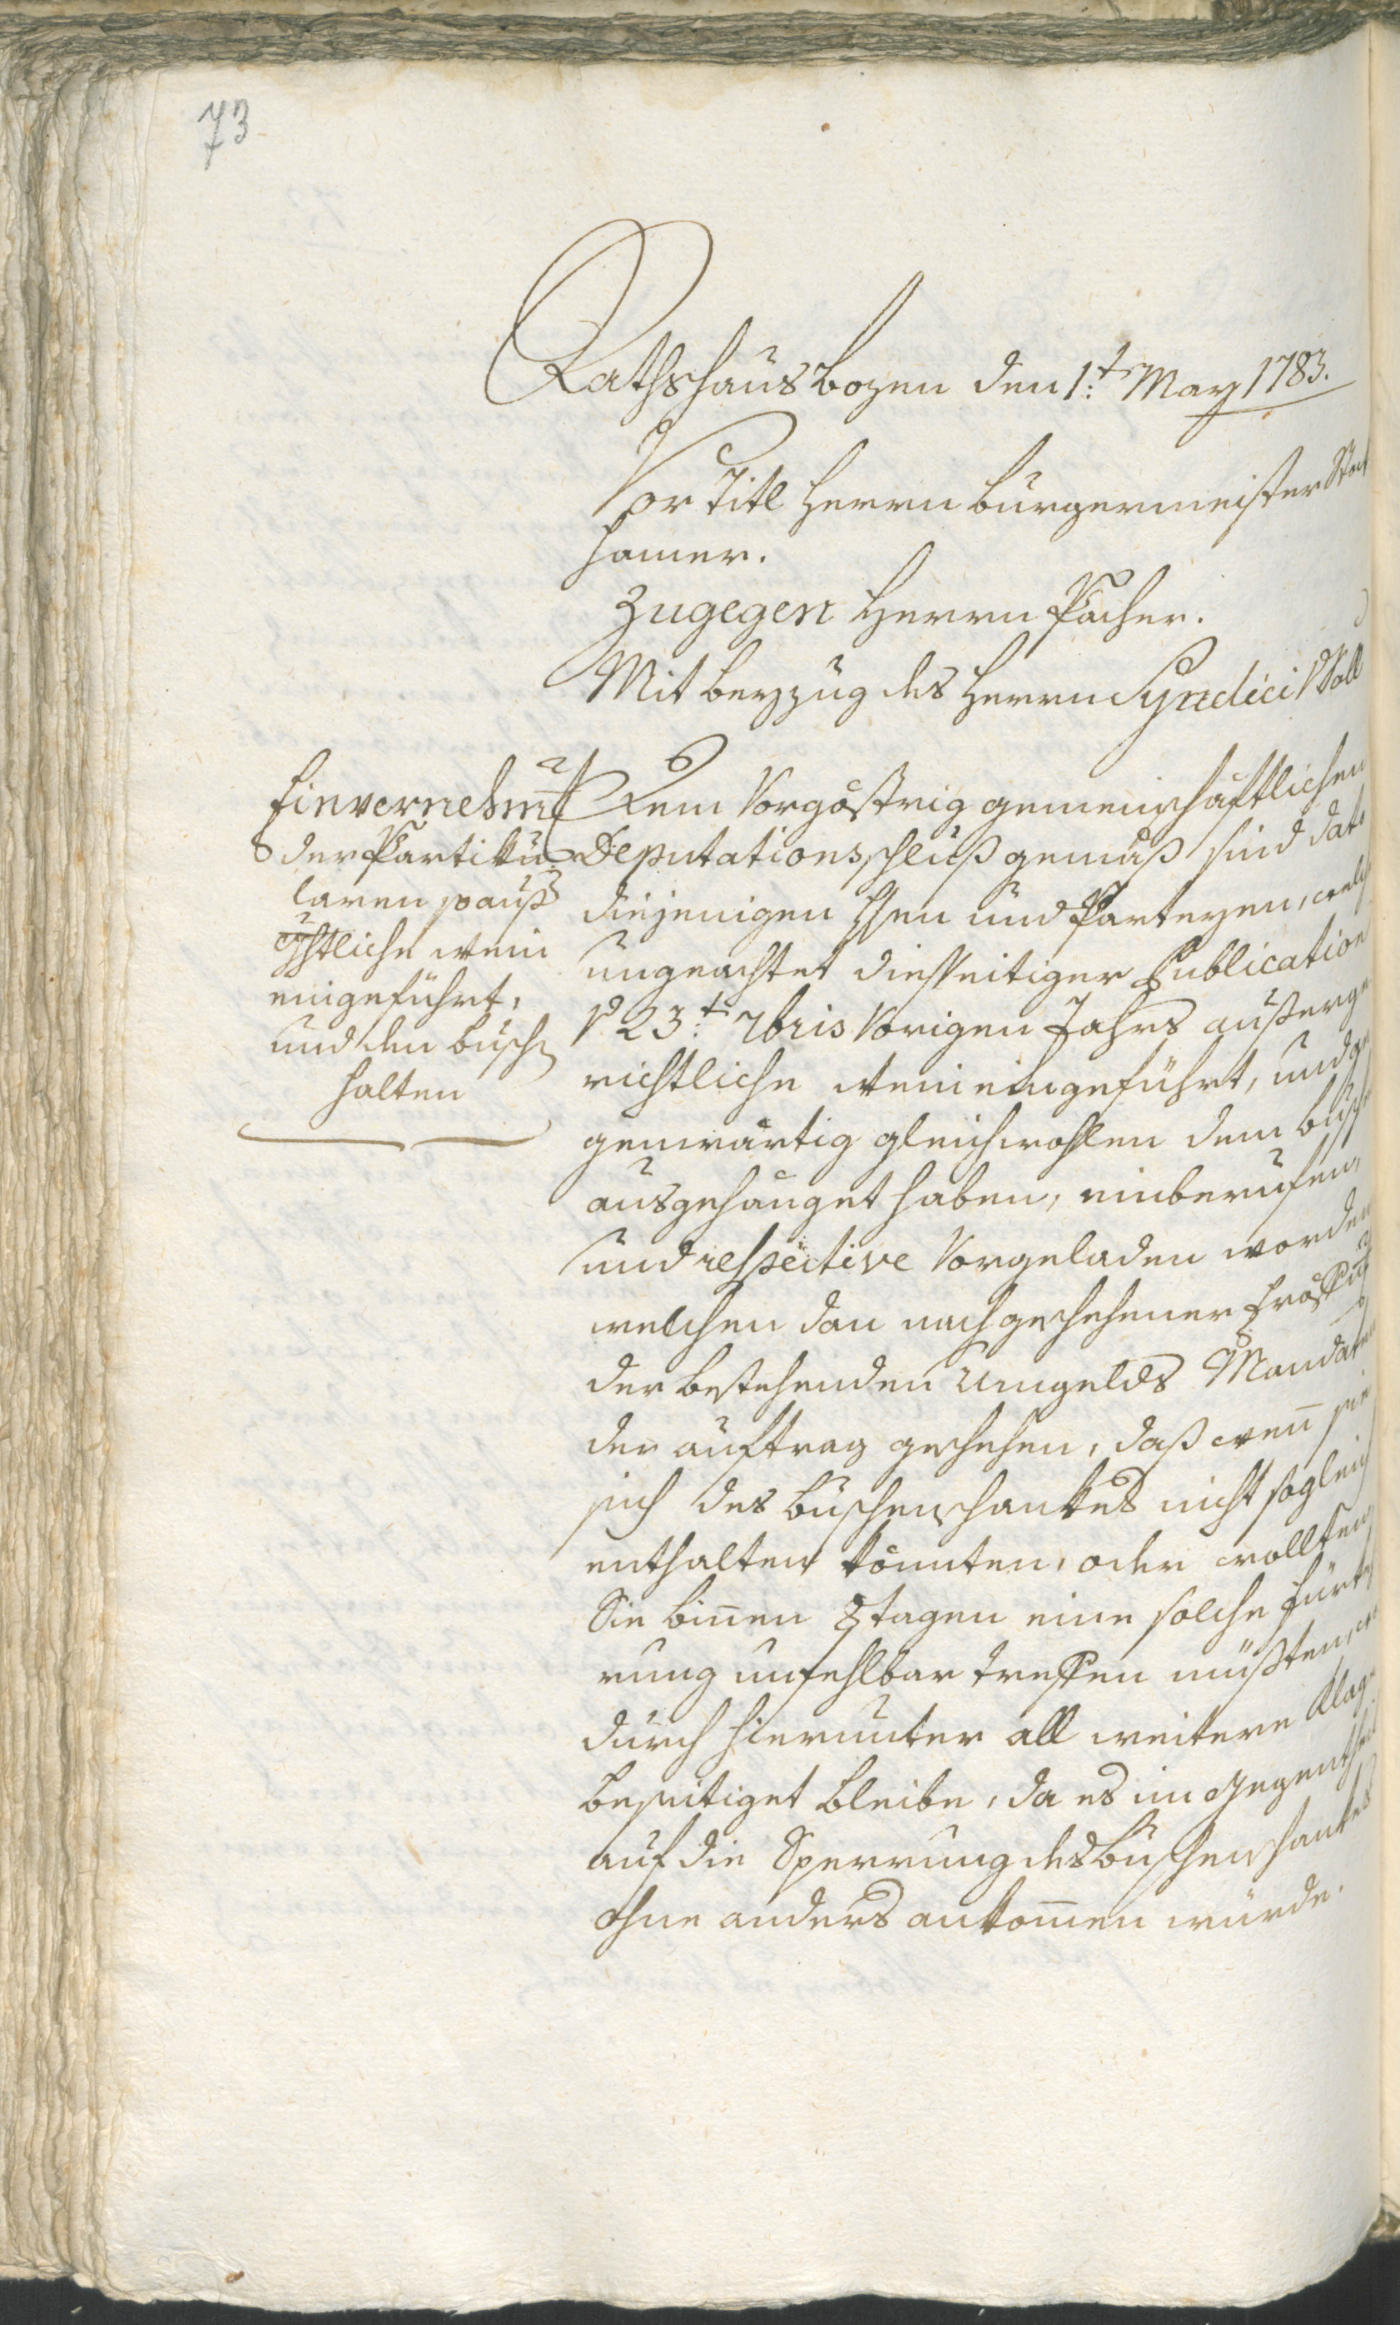 73
Rathshaus Bozen den 1.t May 1783.
Vor Titl Herrn Burgermeister
hamer.
Zugegen Herrn Pacher.
Mit beyzug des Herrn Syndici
Einvernehm̅
der Partiku
laren
chtliche wein
eingeführt,
und den busch
halten
Dem Vorgöstrig gemeinschäftlichen
Deputationsschluß gemäß sind dato
diejenigen Hhen und Parteyen, welch
ungeachtet diesseitiger Publication
23.t 7bris Vorigen Jahrs außerge
richtliche wein eingeführt, und ge
genwärtig gleichwohlen dem busch
ausgehänget haben, einberufen,
und respective Vorgeladen worden
welchen dan nach geschehener
der bestehenden Umgelds Mandaten
der auftrag geschehen, daß wen̅ sie
sich des buschenschankes nicht sogleich
enthalten könnten, oder wollten
Sie bin̅en 8 tagen eine solche
rung unfehlbar treffen müßten,
durch hierunter all weitere Klag
beseitiget bleibe, da es im gegentheil
auf die Sperrung des buschenschankes
ohne anders ankom̅en würde.